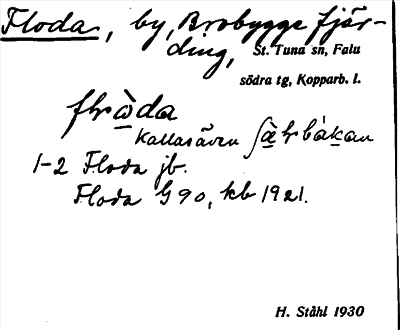 Floda, by, Brobygge fjär-
ding, St. Tuna sn, Falu
södra tg, Kopparb. l.
kallas även
1-2 Floda jb.
Floda G 90, kb 1921.
H. Ståhl 1930